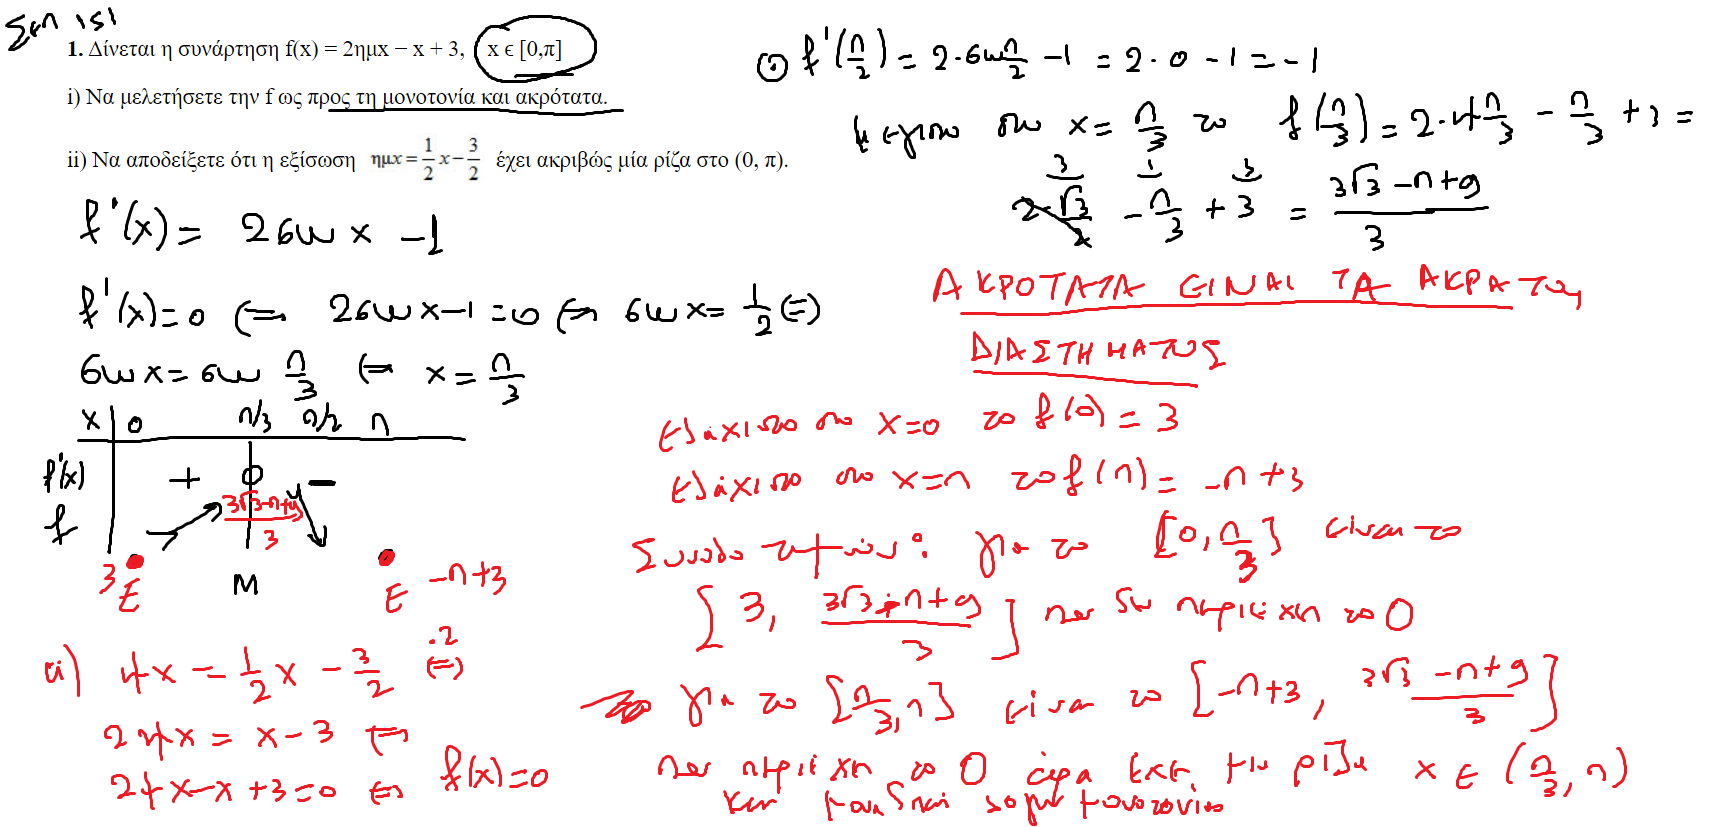 Σελ 151
1. Δίνεται η συνάρτηση f(x) = 2ημx − x + 3, x ϵ [0,π]
i) Να μελετήσετε την f ως προς τη μονοτονία και ακρότατα.
ii) Να αποδείξετε ότι η εξίσωση ημx = 1/2 x − 3/2 έχει ακριβώς μία ρίζα στο (0, π).
f'(x) = 2συν x − 1
f'(x) = 0 ⇔ 2συν x − 1 = 0 ⇔ συν x = 1/2 ⇔
συν x = συν π/3 ⇔ x = π/3
x 0 π/3 π/2 π
f'(x) + 0 −
f 3√3−π+9/3
3 E M E −π+3
ii) ημx = 1/2 x − 3/2 ·2 ⇔
2ημx = x − 3 ⇔
2ημx − x + 3 = 0 ⇔ f(x) = 0
f'(π/2) = 2·συν π/2 − 1 = 2·0 − 1 = −1
Μέγιστο στο x = π/3 το f(π/3) = 2·ημ π/3 − π/3 + 3 =
2·√3/2 − π/3 + 3 = 3√3 − π + 9/3
ΑΚΡΟΤΑΤΑ ΕΙΝΑΙ ΤΑ ΑΚΡΑ ΤΟΥ
ΔΙΑΣΤΗΜΑΤΟΣ
Ελάχιστο στο x=0 το f(0) = 3
Ελάχιστο στο x=π το f(π) = −π+3
Σύνολο τιμών: για το [0, π/3] είναι το
[3, 3√3−π+9/3] που δεν περιέχει το 0
για το [π/3, π] είναι το [−π+3, 3√3−π+9/3]
που περιέχει το 0 άρα έχει μία ρίζα x ∈ (π/3, π)
και μοναδική λόγω μονοτονίας